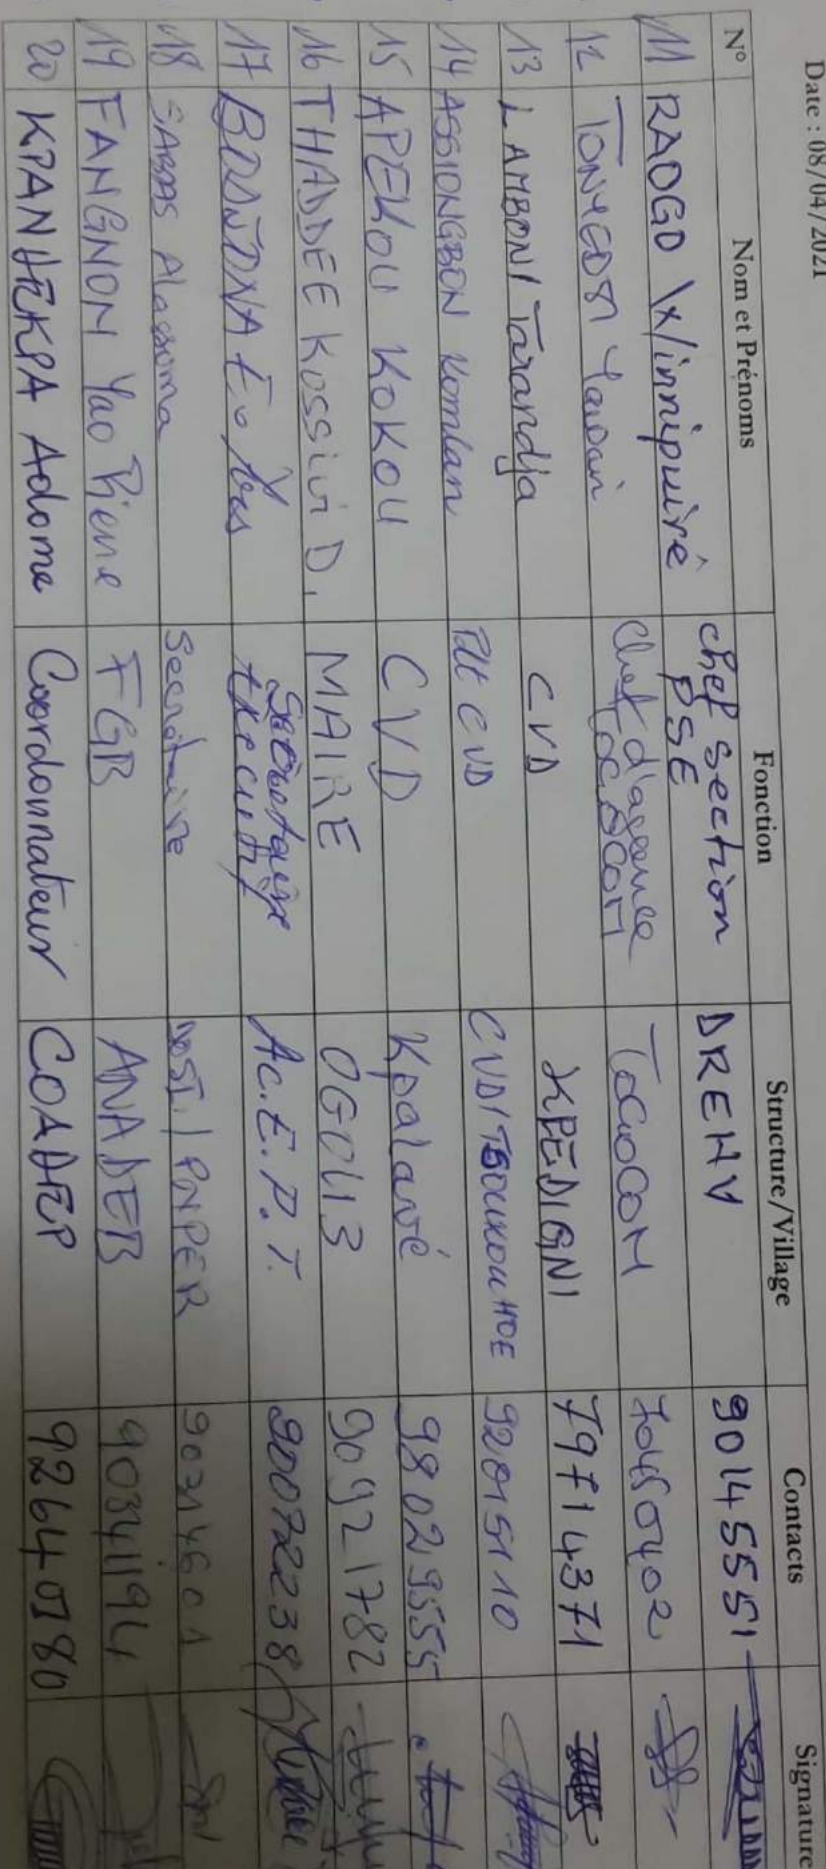 Date : 08/04/2021
N° Nom et Prénoms Fonction Structure/Village Contacts Signature
11 RAOGO Winnipuiré chef section PSE DREHV 90145551
12 Chef d'agence TOGOCOM TOGOCOM 70450402
13 LAMBONI Tarandja CVD KPEDIGNI 79714371
14 ASSIONGBON Komlan Pdt CVD CVD/TSOUKOUHOE 92015110
15 APEKOU KOKOU CVD Kpalavé 98029555
16 THADDEE Kossiwi D. MAIRE OGOU3 90921782
17 Secrétaire Exécutif Ac.E.P.T. 90072238
18 SABAS Alassoma Secrétaire /PNPER 90314601
19 FANGNON Yao Pierre FGB ANADEB 90341194
20 KPANHEKPA Adome Coordonnateur COADEP 92640180